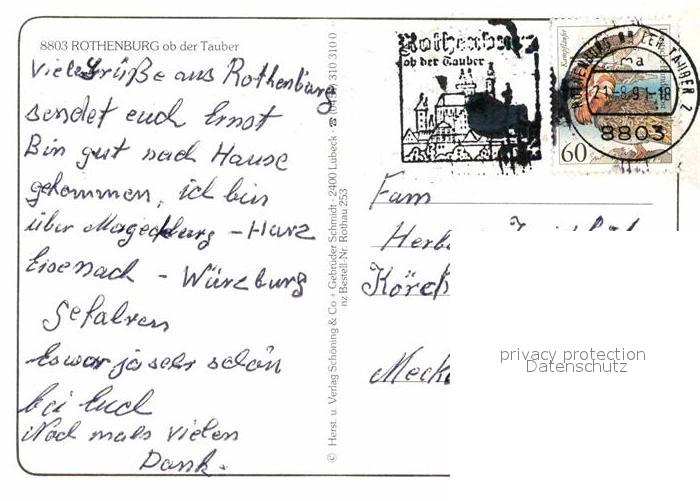 8803 ROTHENBURG ob der Tauber
Viele Grüße aus Rothenburg
sendet euch Ernst
Bin gut nach Hause
gekommen, ich bin
über Magedeburg - Harz
Eisenach - Würzburg
gefahren
Es war ja sehr schön
bei Euch
Noch mals vielen
Dank.
© Herst. u. Verlag Schöning & Co + Gebrüder Schmidt · 2400 Lübeck ·
nz Bestell-Nr. Rothau 253
Rothenburg
ob der Tauber
ROTHENBURG OB DER TAUBER 2
ma
21.-8.91-18
8803
Kampfläufer
60
Fam
Herb
Körch
Meck
privacy protection
Datenschutz